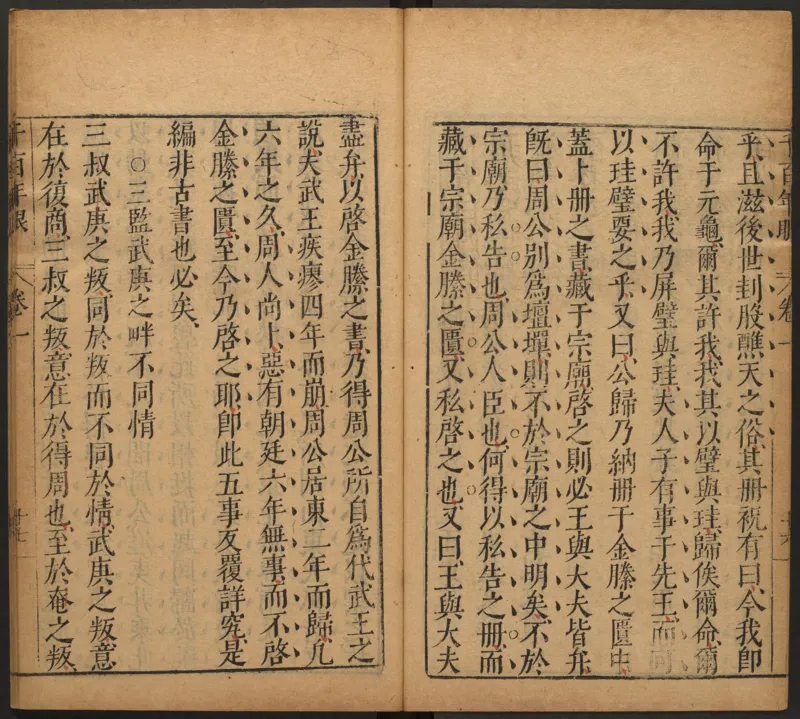 乎且滋後世刲股醮天之俗其冊祝有曰今我卽
命于元龜爾其許我我其以璧與珪歸俟爾命爾
不許我我乃屏璧與珪夫人子有事于先王而可
以珪璧要之乎又曰公歸乃納冊于金縢之匱中
蓋卜冊之書藏于宗廟啓之則必王與大夫皆弁
旣曰周公別爲壇墠則不於宗廟之中明矣不於
宗廟乃私告也周公人臣也何得以私告之冊而
藏于宗廟金縢之匱又私啓之也又曰王與大夫
盡弁以啓金縢之書乃得周公所自爲代武王之
說夫武王疾瘳四年而崩周公居東二年而歸凡
六年之久周人尚卜惡有朝廷六年無事而不啓
金縢之匱至今乃啓之耶卽此五事反覆詳究是
編非古書也必矣
○三監武庚之畔不同情
三叔武庚之叛同於叛而不同於情武庚之叛意
在於復商三叔之叛意在於得周也至於奄之叛
千百年眼 卷一